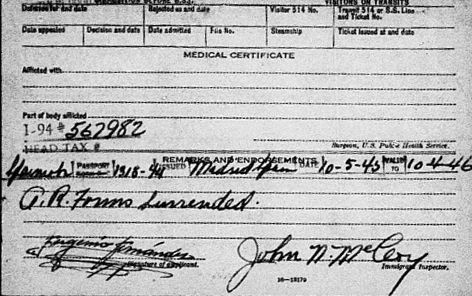 VISITORS OR TRANSITS
Deferred for and date Rejected as and date Visitor 514 No. Transit 514 or S.S. Line and Ticket No.
Date appealed Decision and date Date admitted File No. Steamship Ticket issued at and date
MEDICAL CERTIFICATE
Afflicted with
Part of body afflicted
I-94 # 562982
HEAD TAX # Surgeon, U.S. Public Health Service.
REMARKS AND ENDORSEMENTS
PASSPORT 1318-44 ISSUED Madrid Spain DATE 10-5-45 VALID TO 10-4-46
A.R. Forms surrended.
Eugenio Fernández John N. McCloy
Signature of applicant. Immigrant Inspector.
16-13179